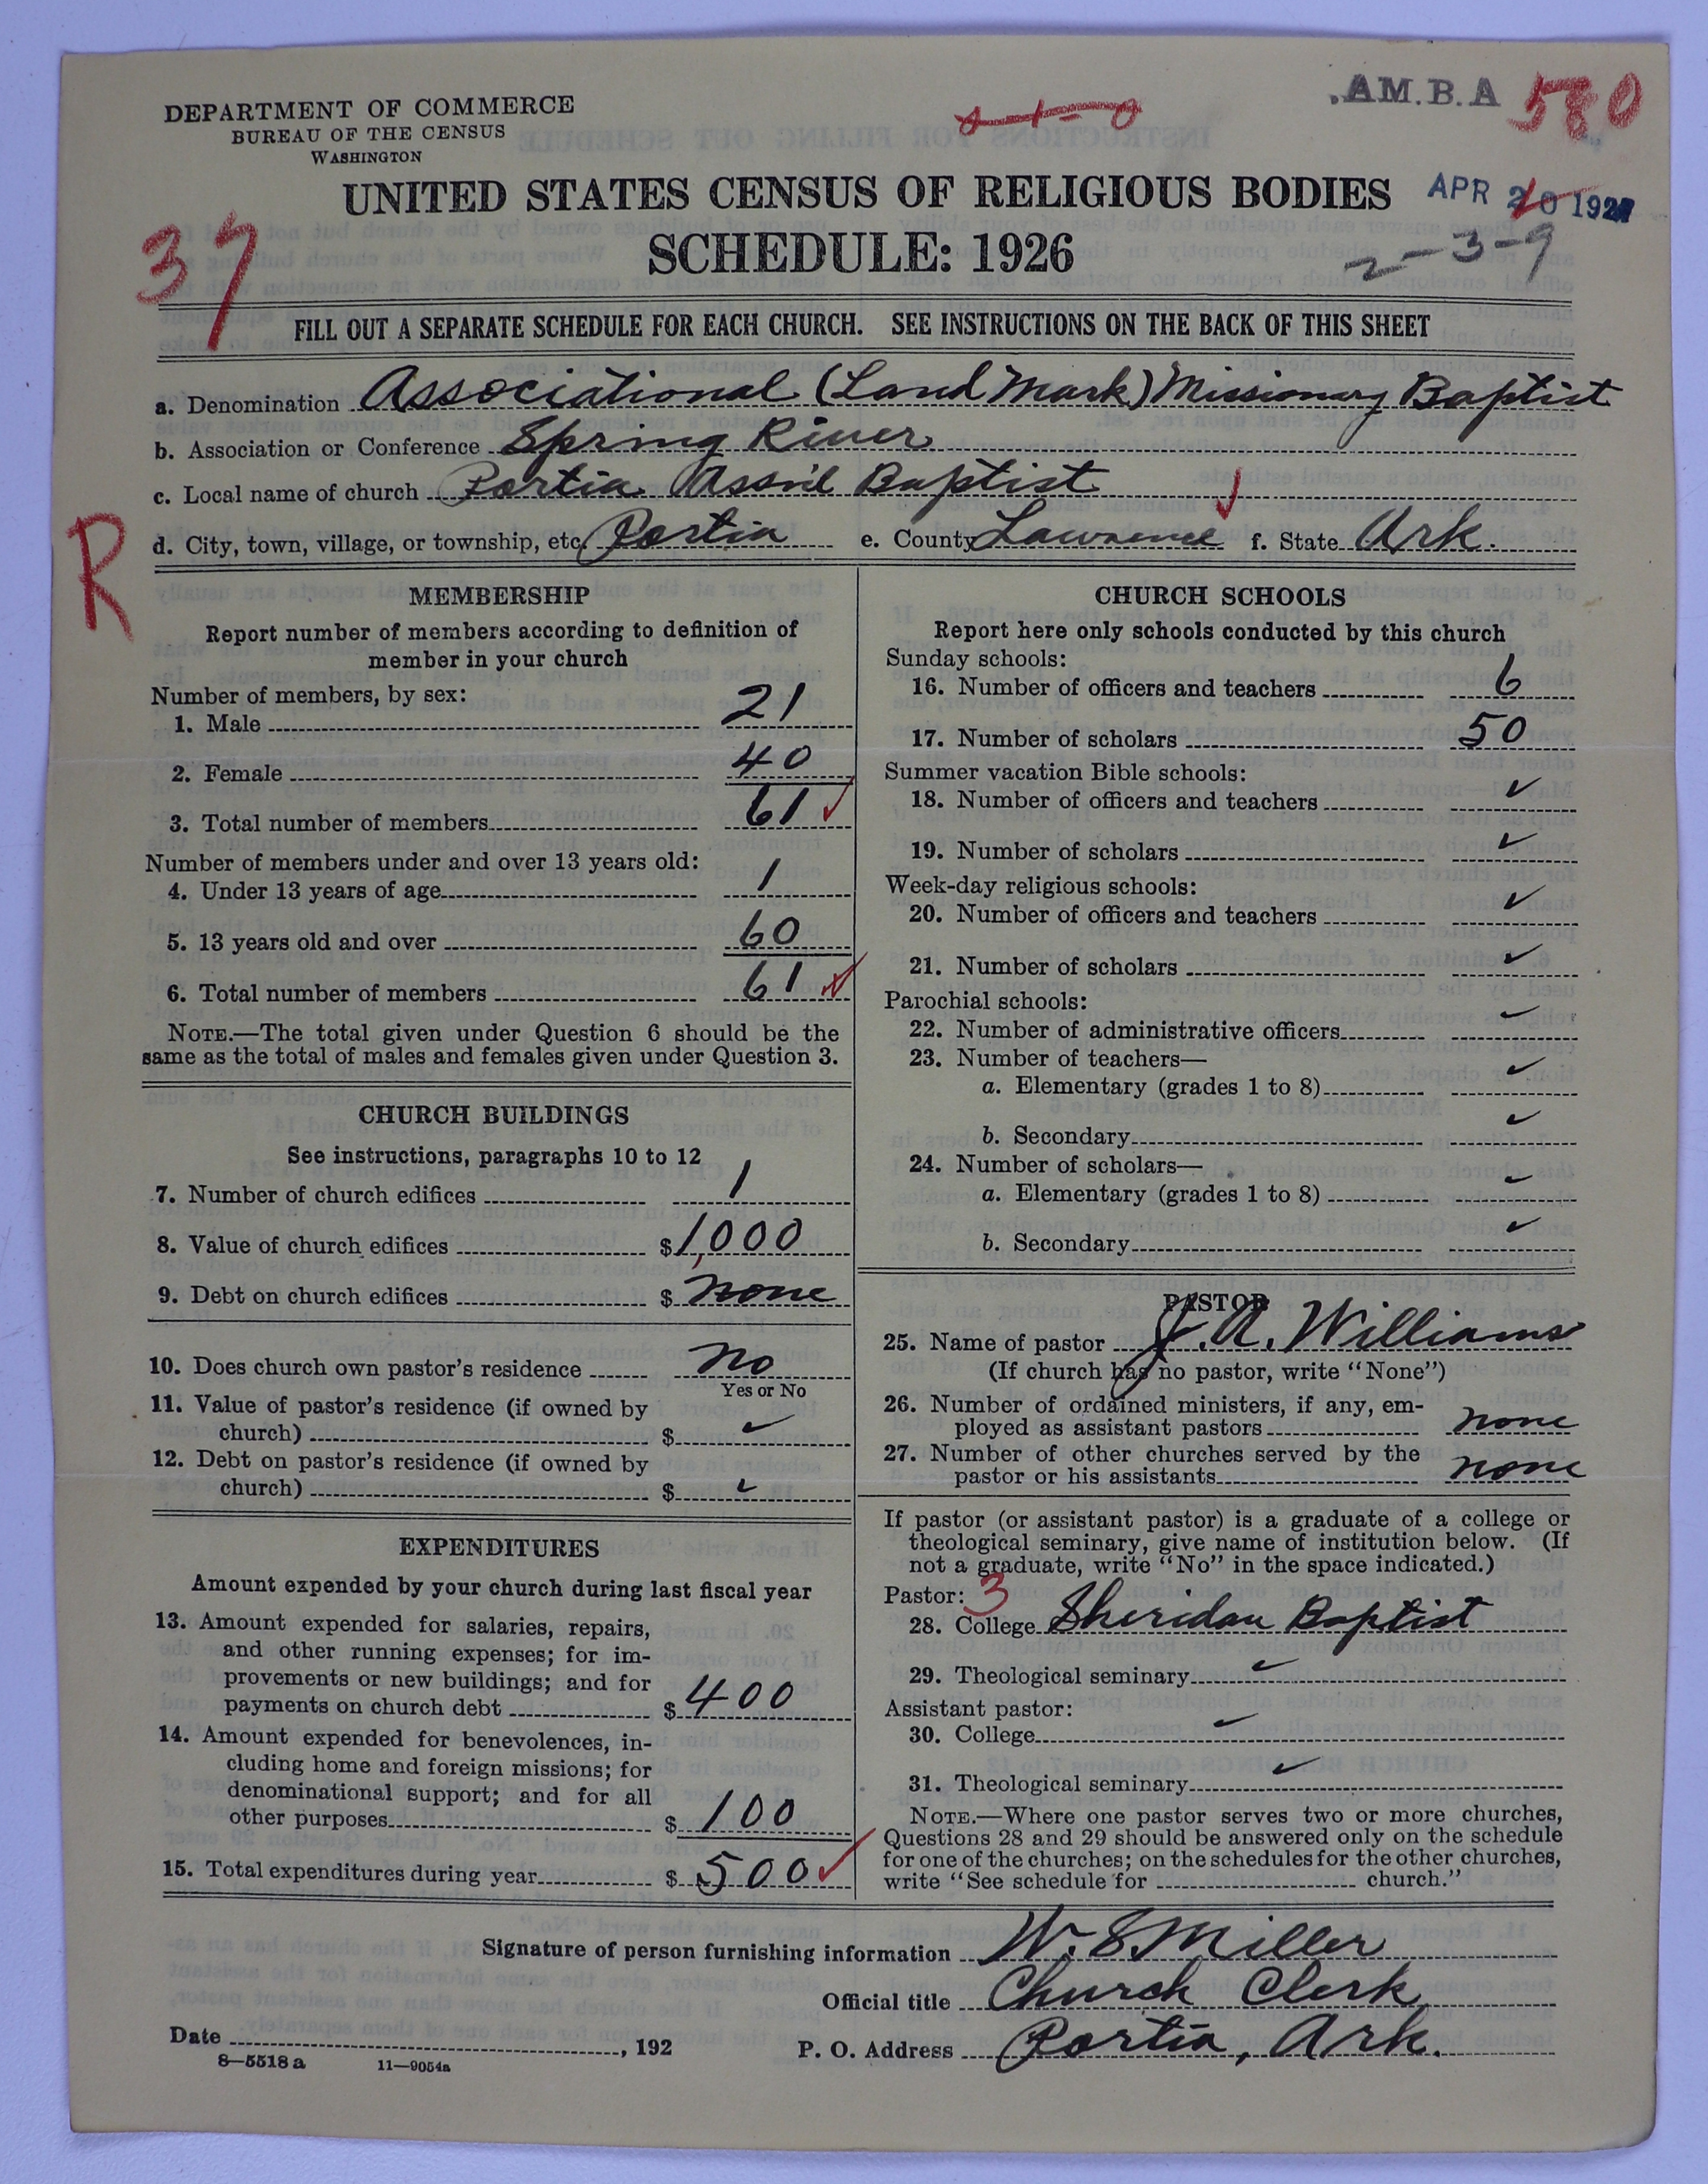 DEPARTMENT OF COMMERCE
BUREAU OF THE CENSUS
WASHINGTON
.AM.B.A 580
UNITED STATES CENSUS OF RELIGIOUS BODIES
APR 20 1927
SCHEDULE: 1926
2-3-9
37
FILL OUT A SEPARATE SCHEDULE FOR EACH CHURCH. SEE INSTRUCTIONS ON THE BACK OF THIS SHEET
a. Denomination Associational (Land Mark) Missionary Baptist
b. Association or Conference Spring River
c. Local name of church Portia Ass'n'l Baptist
d. City, town, village, or township, etc. Portia e. County Lawrence f. State Ark.
R
MEMBERSHIP
Report number of members according to definition of
member in your church
Number of members, by sex:
1. Male 21
2. Female 40
3. Total number of members 61
Number of members under and over 13 years old:
4. Under 13 years of age 1
5. 13 years old and over 60
6. Total number of members 61
NOTE.—The total given under Question 6 should be the
same as the total of males and females given under Question 3.
CHURCH BUILDINGS
See instructions, paragraphs 10 to 12
7. Number of church edifices 1
8. Value of church edifices $1,000
9. Debt on church edifices $ none
10. Does church own pastor's residence no
Yes or No
11. Value of pastor's residence (if owned by
church) $ ✓
12. Debt on pastor's residence (if owned by
church) $ ✓
EXPENDITURES
Amount expended by your church during last fiscal year
13. Amount expended for salaries, repairs,
and other running expenses; for im-
provements or new buildings; and for
payments on church debt $ 400
14. Amount expended for benevolences, in-
cluding home and foreign missions; for
denominational support; and for all
other purposes $ 100
15. Total expenditures during year $ 500
CHURCH SCHOOLS
Report here only schools conducted by this church
Sunday schools:
16. Number of officers and teachers 6
17. Number of scholars 50
Summer vacation Bible schools:
18. Number of officers and teachers ✓
19. Number of scholars ✓
Week-day religious schools:
20. Number of officers and teachers ✓
21. Number of scholars ✓
Parochial schools:
22. Number of administrative officers ✓
23. Number of teachers—
a. Elementary (grades 1 to 8) ✓
b. Secondary ✓
24. Number of scholars—
a. Elementary (grades 1 to 8) ✓
b. Secondary ✓
PASTOR
25. Name of pastor J. A. Williams
(If church has no pastor, write "None")
26. Number of ordained ministers, if any, em-
ployed as assistant pastors none
27. Number of other churches served by the
pastor or his assistants none
If pastor (or assistant pastor) is a graduate of a college or
theological seminary, give name of institution below. (If
not a graduate, write "No" in the space indicated.)
Pastor: 3
28. College Sheridan Baptist
29. Theological seminary ✓
Assistant pastor:
30. College ✓
31. Theological seminary ✓
NOTE.—Where one pastor serves two or more churches,
Questions 28 and 29 should be answered only on the schedule
for one of the churches; on the schedules for the other churches,
write "See schedule for church."
Signature of person furnishing information W. S. Miller
Official title Church Clerk
Date , 192
P. O. Address Portia, Ark.
8—5518 a 11—9054a